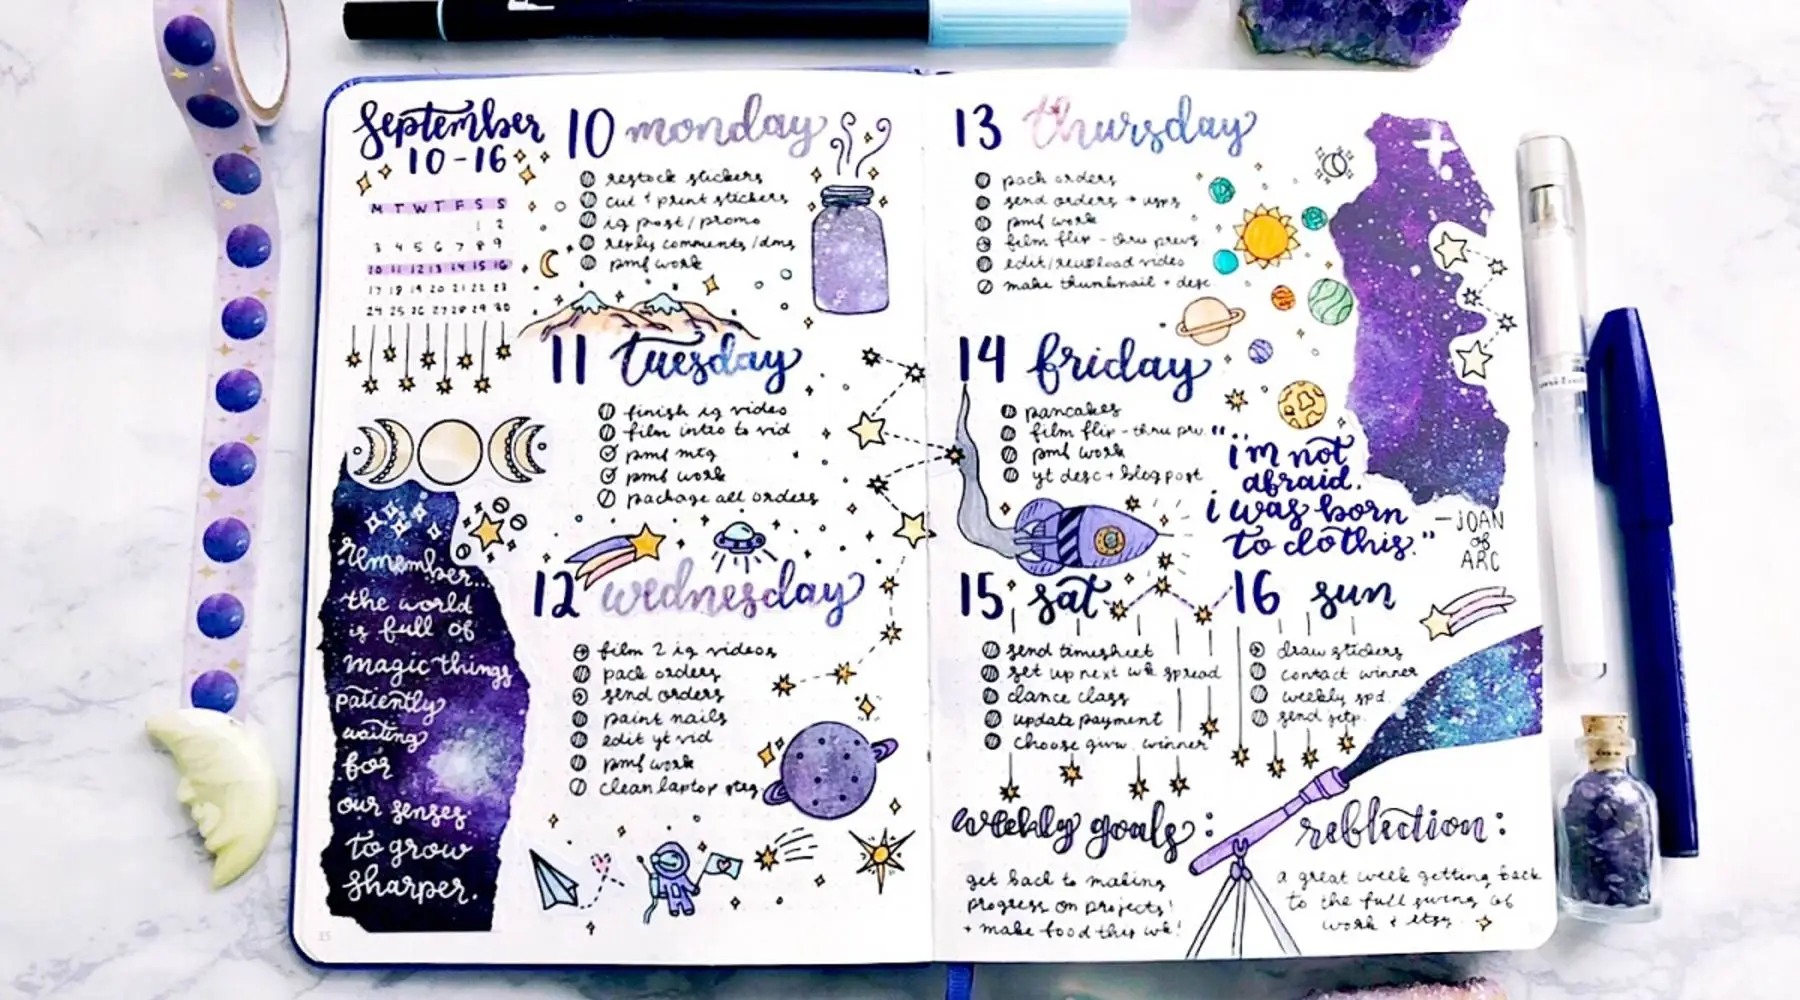 September
10-16
M T W T F S S
1 2
3 4 5 6 7 8 9
10 11 12 13 14 15 16
17 18 19 20 21 22 23
24 25 26 27 28 29 30
remember...
the world
is full of
magic things
patiently
waiting
for
our senses
to grow
sharper.
10 monday
restock stickers
cut + print stickers
ig post/promo
reply comments/dms
pmf work
11 tuesday
finish ig video
film intro to vid
pmf mtg
pmf work
package all orders
12 wednesday
film 2 ig videos
pack orders
send orders
paint nails
edit yt vid
pmf work
clean laptop
13 thursday
pack orders
send orders → usps
pmf work
film flip-thru prevs
edit/reupload video
make thumbnail + desc
14 friday
pancakes
film flip-thru prev.
pmf work
yt desc + blog post
"i'm not
afraid.
i was born
to do this."
-JOAN
of
ARC
15 sat
send timesheet
set up next wk spread
dance class
update payment
choose givw. winner
16 sun
draw stickers
contact winner
weekly spd.
send
weekly goals:
get back to making
progress on projects!
+ make food this wk!
reflection:
a great week getting back
to the full swing of
work + etsy.